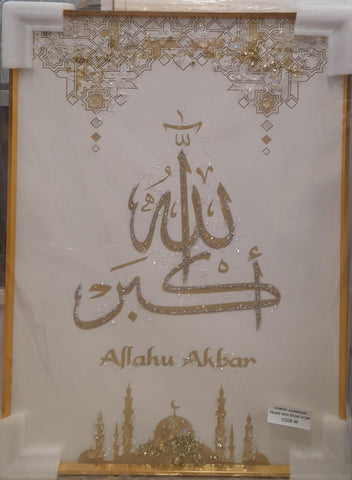 الله
أكبر
Allahu Akbar
CODE 40